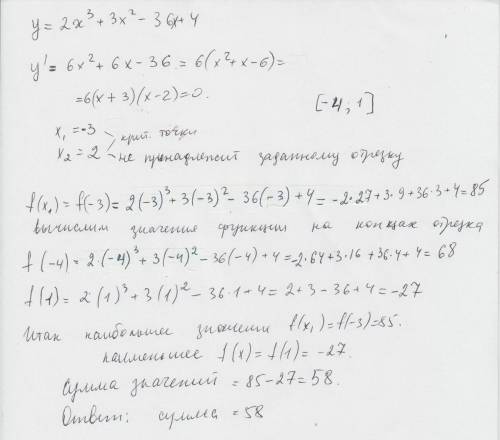 y = 2x³ + 3x² - 36x + 4
y' = 6x² + 6x - 36 = 6(x² + x - 6) =
= 6(x + 3)(x - 2) = 0.
[-4; 1]
x₁ = -3
крит. точки
x₂ = 2 - не принадлежит заданному отрезку
f(x₁) = f(-3) = 2(-3)³ + 3(-3)² - 36(-3) + 4 = -2·27 + 3·9 + 36·3 + 4 = 85
вычислим значение функции на концах отрезка
f(-4) = 2·(-4)³ + 3(-4)² - 36(-4) + 4 = -2·64 + 3·16 + 36·4 + 4 = 68
f(1) = 2(1)³ + 3(1)² - 36·1 + 4 = 2 + 3 - 36 + 4 = -27
Итак наибольшее значение f(x₁) = f(-3) = 85.
наименьшее f(x) = f(1) = -27.
Сумма значений = 85 - 27 = 58.
Ответ: сумма = 58